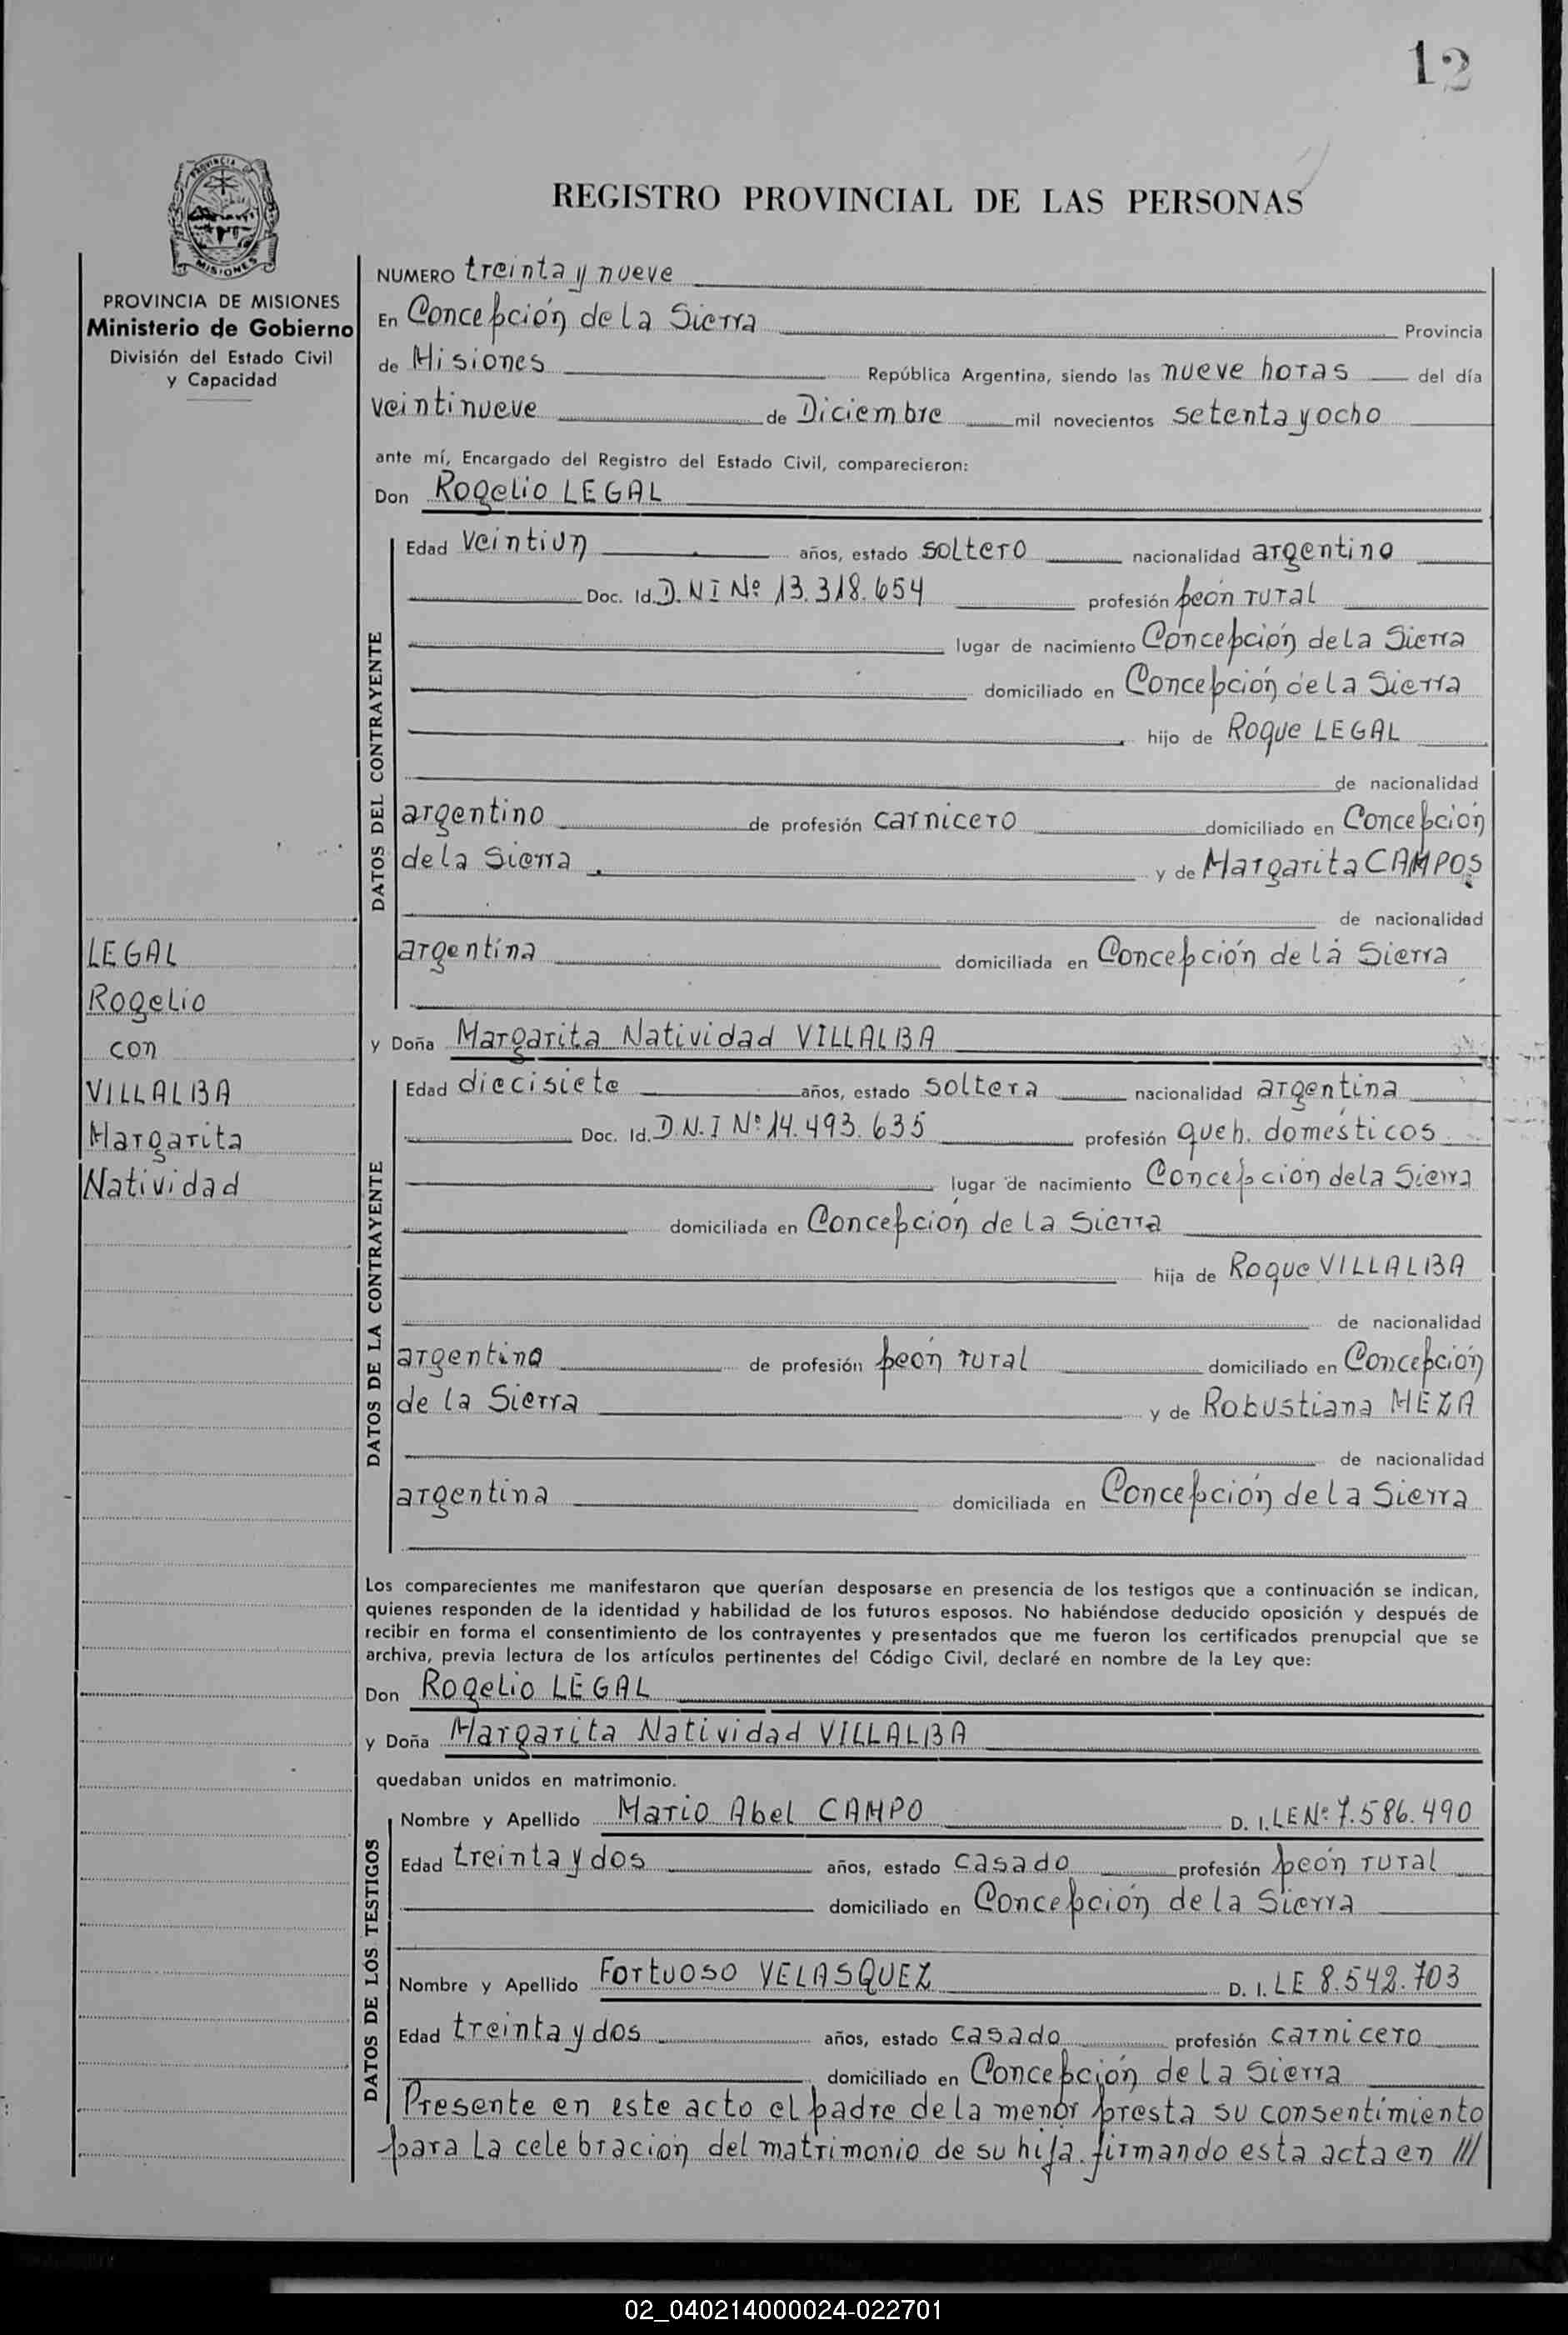 12
PROVINCIA
MISIONES
REGISTRO PROVINCIAL DE LAS PERSONAS
PROVINCIA DE MISIONES
Ministerio de Gobierno
División del Estado Civil
y Capacidad
NUMERO treinta y nueve
En Concepción de la Sierra Provincia
de Misiones República Argentina, siendo las nueve horas del día
veintinueve de Diciembre mil novecientos setenta y ocho
ante mí, Encargado del Registro del Estado Civil, comparecieron:
Don Rogelio LEGAL
DATOS DEL CONTRAYENTE
Edad veintiun años, estado soltero nacionalidad argentino
Doc. Id. D.N I Nº 13.318.654 profesión peón rural
lugar de nacimiento Concepción de la Sierra
domiciliado en Concepción de la Sierra
hijo de Roque LEGAL
de nacionalidad
argentino de profesión carnicero domiciliado en Concepción
de la Sierra y de Margarita CAMPOS
de nacionalidad
argentina domiciliada en Concepción de la Sierra
LEGAL
Rogelio
con
VILLALBA
Margarita
Natividad
y Doña Margarita Natividad VILLALBA
DATOS DE LA CONTRAYENTE
Edad diecisiete años, estado soltera nacionalidad argentina
Doc. Id. D N.I Nº 14.493.635 profesión queh. domésticos
lugar de nacimiento Concepción de la Sierra
domiciliada en Concepción de la Sierra
hija de Roque VILLALBA
de nacionalidad
argentino de profesión peón rural domiciliado en Concepción
de la Sierra y de Robustiana MEZA
de nacionalidad
argentina domiciliada en Concepción de la Sierra
Los comparecientes me manifestaron que querían desposarse en presencia de los testigos que a continuación se indican,
quienes responden de la identidad y habilidad de los futuros esposos. No habiéndose deducido oposición y después de
recibir en forma el consentimiento de los contrayentes y presentados que me fueron los certificados prenupcial que se
archiva, previa lectura de los artículos pertinentes del Código Civil, declaré en nombre de la Ley que:
Don Rogelio LEGAL
y Doña Margarita Natividad VILLALBA
quedaban unidos en matrimonio.
DATOS DE LOS TESTIGOS
Nombre y Apellido Mario Abel CAMPO D. I. LE Nº 7.586.490
Edad treinta y dos años, estado casado profesión peón rural
domiciliado en Concepción de la Sierra
Nombre y Apellido Fortuoso VELASQUEZ D. I. LE 8.542.703
Edad treinta y dos años, estado casado profesión carnicero
domiciliado en Concepción de la Sierra
Presente en este acto el padre de la menor presta su consentimiento
para la celebración del matrimonio de su hija. firmando esta acta en ///
02_040214000024-022701